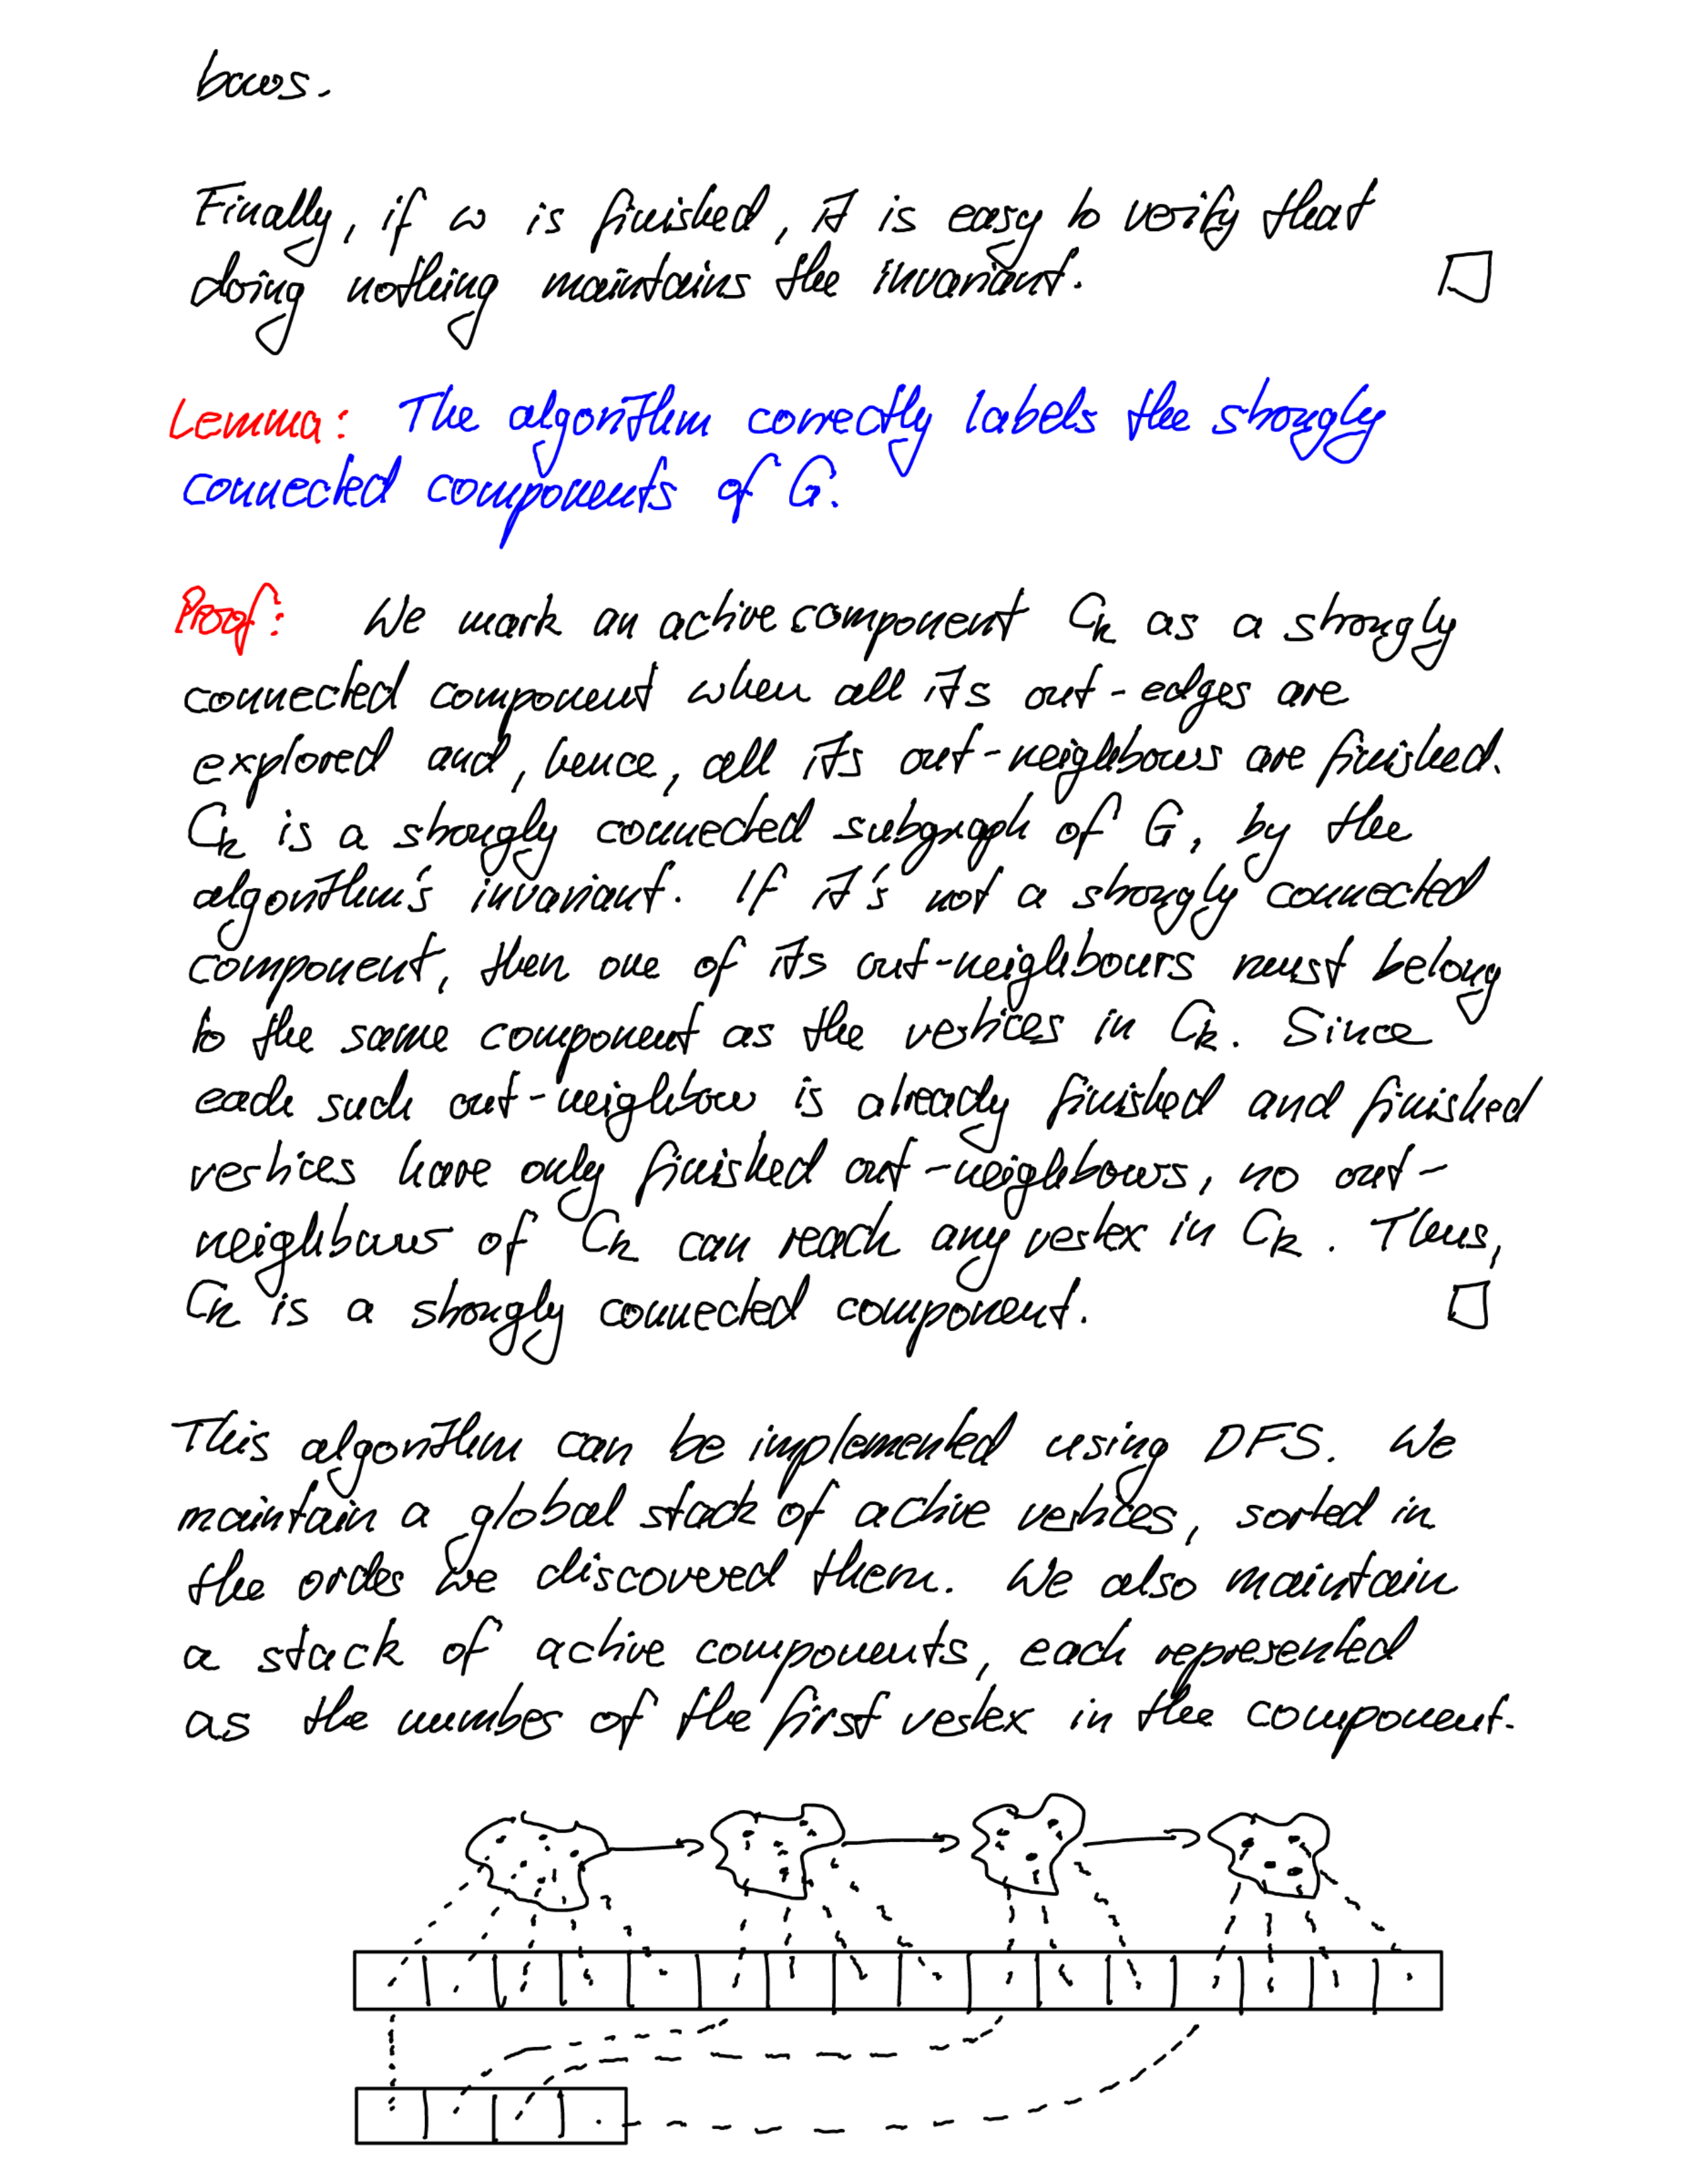 bours.
Finally, if w is finished, it is easy to verify that
doing nothing maintains the invariant.
Lemma: The algorithm correctly labels the strongly
connected components of G.
Proof: We mark an active component Ck as a strongly
connected component when all its out-edges are
explored and, hence, all its out-neighbours are finished.
Ck is a strongly connected subgraph of G, by the
algorithm's invariant. If it's not a strongly connected
component, then one of its out-neighbours must belong
to the same component as the vertices in Ck. Since
each such out-neighbour is already finished and finished
vertices have only finished out-neighbours, no out-
neighbour of Ck can reach any vertex in Ck. Thus,
Ck is a strongly connected component.
This algorithm can be implemented using DFS. We
maintain a global stack of active vertices, sorted in
the order we discovered them. We also maintain
a stack of active components, each represented
as the number of the first vertex in the component.